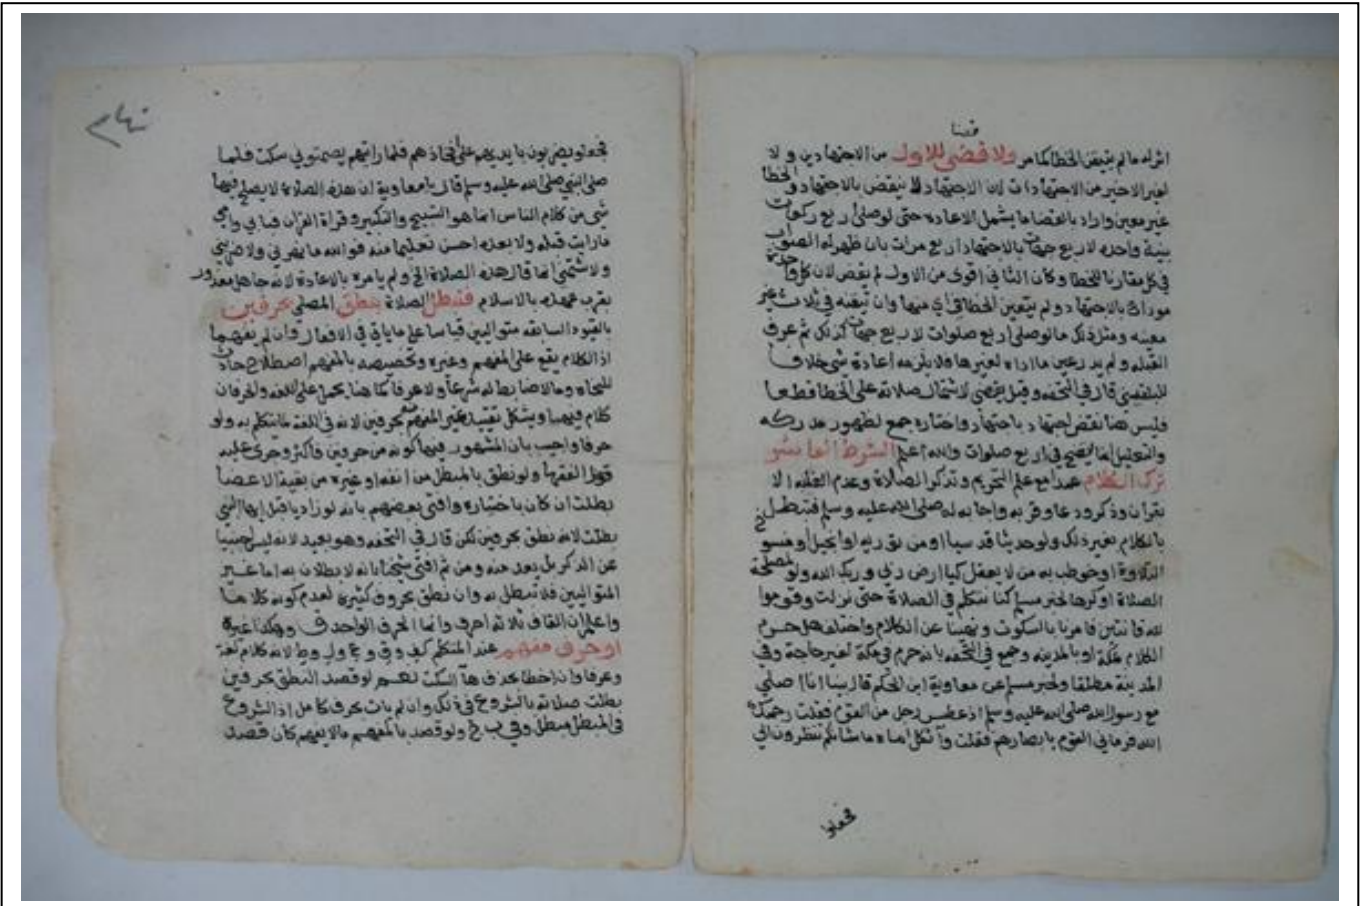 قضا
اثر له ما لم يتيقن الخطا كما مر ولا قضى للاول من الاجتهادين ولا
لغير الاخير من الاجتهادات لان الاجتهاد لا ينقض بالاجتهاد والخطا
غير معين واراد بالقضا ما يشمل الاعادة حتى لو صلى اربع ركعات
بنية واحدة لاربع جهات بالاجتهاد اربع مرات بان ظهر له الصواب
في كل مقارنا للخطا وكان الثاني اقوى من الاول لم يقض لان كل واحدة
موداة بالاجتهاد ولم يتعين الخطا في اي منها وان تيقنه في ثلاث غير
معينه ومثل ذلك ما لو صلى اربع صلوات لاربع جهات كذلك ثم عرف
القبله ولم يدر عين ما اداه لغيرها فلا يلزمه اعادة شي خلافا
للبلقيني قال في التحفه وقيل يقضي لاشتمال صلاته على الخطا قطعا
فليس هنا نقض اجتهاد باجتهاد واختاره جمع لظهور مدركه
والتعليل انما يتضح في اربع صلوات والله اعلم الشرط العاشر
ترك الكلام عمدا مع علم التحريم وتذكر الصلاة وعدم الغلبه الا
بقران وذكر ودعا وقربه واجابه له صلى الله عليه وسلم فتبطل
بالكلام بغير ذلك ولو حديثا قدسيا او من توريه او انجيل او منسوخ
التلاوة او خوطب به من لا يعقل كيا ارض ربي وربك الله ولو لمصلحة
الصلاة او كرها لخبر مسلم كنا نتكلم في الصلاة حتى نزلت وقوموا
لله قانتين فامرنا بالسكوت ونهينا عن الكلام واختلف هل حرم
الكلام بمكة او بالمدينه وجمع في التحفه بانه حرم في مكة لغير حاجة وفي
المدينة مطلقا ولخبر مسلم عن معاوية ابن الحكم قال بينا انا اصلي
مع رسول الله صلى الله عليه وسلم اذ عطس رجل من القوم فقلت رحمك
الله فرماني القوم بابصارهم فقلت واثكل اماه ما شانكم تنظرون الي
فجعلوا
٢٤٠
فجعلو يضربون بايديهم على افخاذهم فلما رايتهم يصمتوني سكت فلما
صلى النبي صلى الله عليه وسلم قال يا معاوية ان هذه الصلاة لا يصلح فيها
شي من كلام الناس انما هو التسبيح والتكبير وقراة القران فبابي وامي
ما رايت قبله ولا بعده احسن تعليما منه فوالله ما نهرني ولا ضربني
ولا شتمني انما قال هذه الصلاة الخ ولم يامره بالاعادة لانه جاهل معذور
بقرب عهده بالاسلام فتبطل الصلاة بنطق المصلي بحرفين
بالقيود السابقه متواليين قياسا على ما ياتي في الافعال وان لم يفهما
اذ الكلام يقع على المفهم وغيره وتخصيصه بالمفهم اصطلاح حادث
للنحاه وما لا ضابط له شرعا ولا عرفا كما هنا يحمل على اللغه والحرفان
كلام فيهما ويشكل تقييد غير المفهم بحرفين لانه في اللغة ما يتكلم به ولو
حرفا واجيب بان المشهور فيها كونه من حرفين فاكثر وجرى عليه
الفقها ولو نطق بالمبطل من انفه او غيره من بقية الاعضا
بطلت ان كان باختياره وافتى بعضهم بانه لو زاد يا قبل ايها النبي
بطلت لانه نطق بحرفين لكن قال في التحفه وهو بعيد لانه ليس اجنبيا
عن الذكر بل يعد منه ومن ثم افتى شيخنا بانه لا بطلان به اما غير
المتواليين فلا تبطل به وان نطق بحروف كثيره لعدم كونه كلاما
واعلم ان القاف ثلاثه احرف وانما الحرف الواحد ق وهكذا غيره
او حرف مفهم عند المتكلم كف وق وع ول وط لانه كلام لغة
وعرفا وان اخطا بحذف ها السكت نعم لو قصد النطق بحرفين
بطلت صلاته بالشروع في ذلك وان لم يات بحرف كامل اذ الشروع
في المبطل مبطل وفي ب ج ولو قصد بالمفهم ما لا يفهم كان قصد